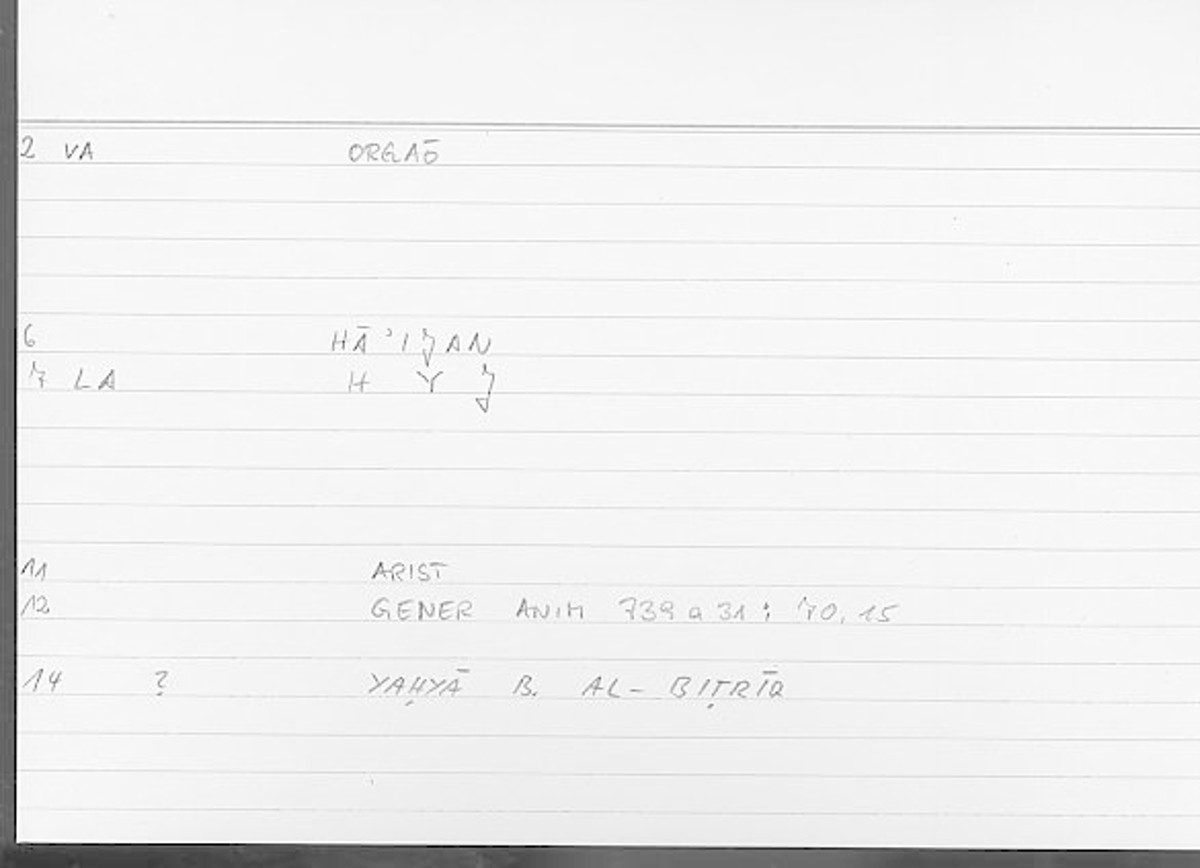 2 VA ORGAŌ
6 HĀʾIǦAN
7 LA H Y Ǧ
11 ARIST
12 GENER ANIM 739 a 31 ; 70, 15
14 ? YAḤYĀ B. AL-BIṬRĪQ